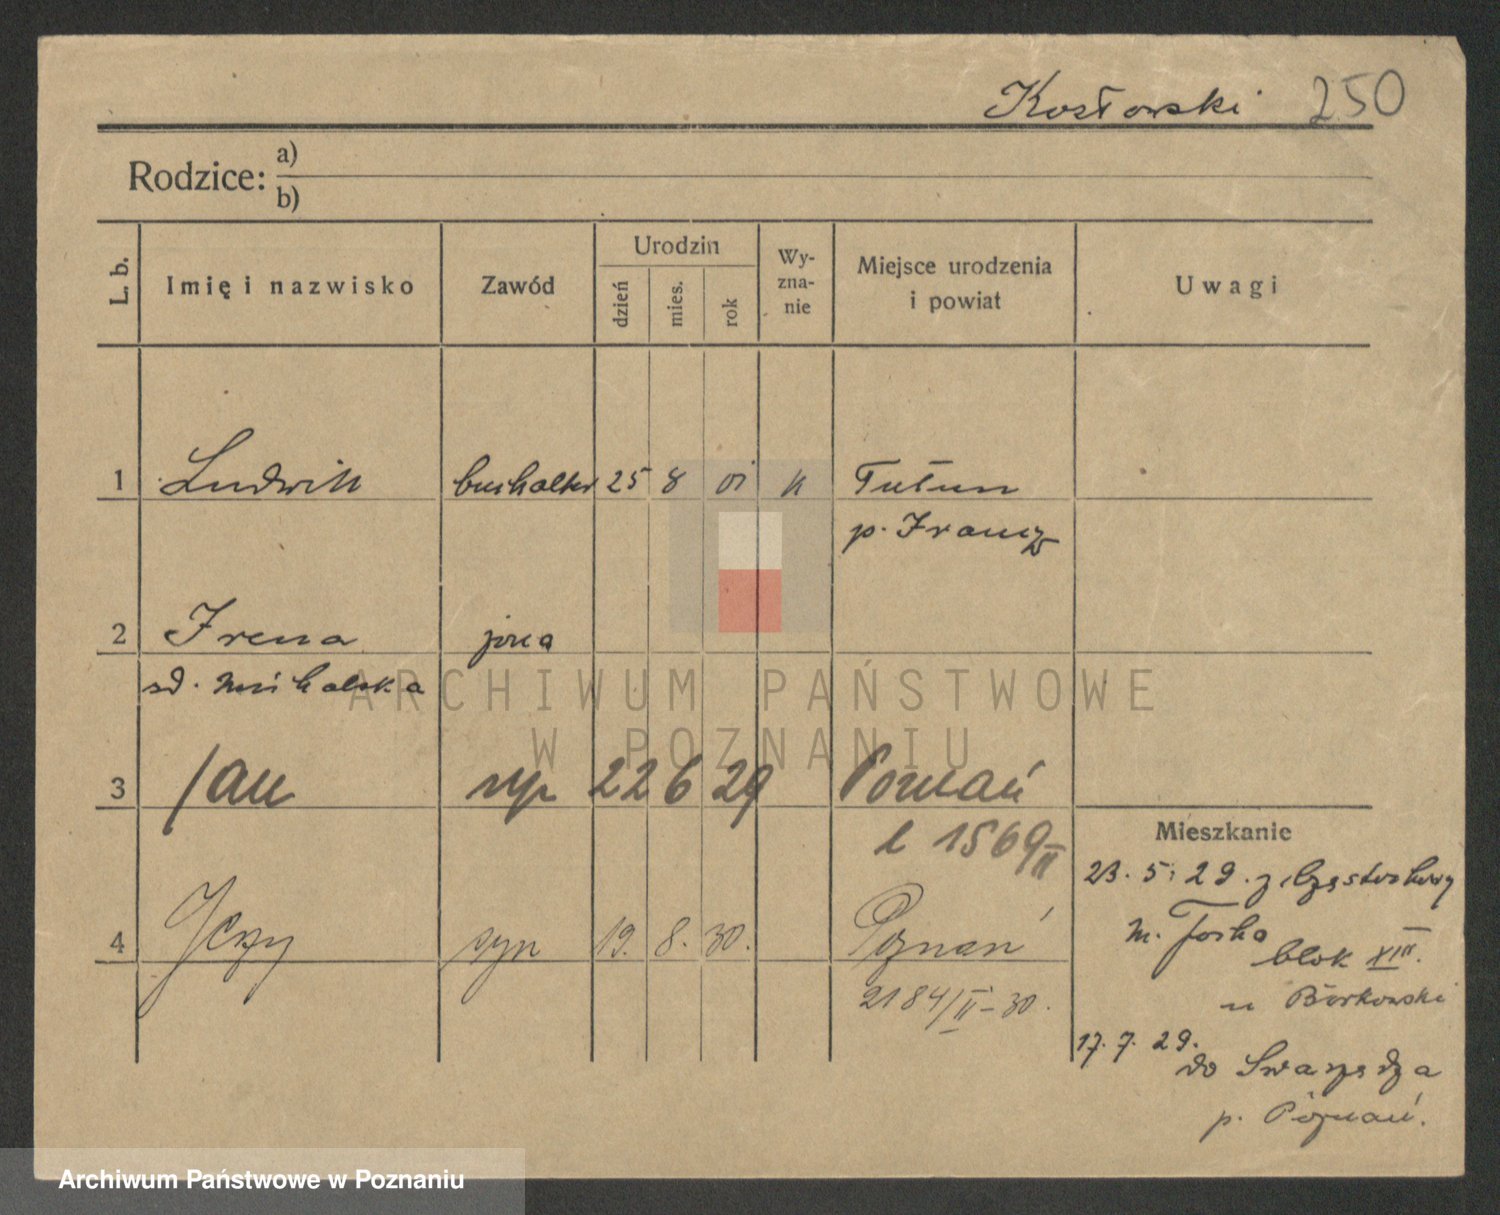 Kosłowski 250
Rodzice: a)
b)
L. b. Imię i nazwisko Zawód Urodzin dzień mies. rok Wy-zna-nie Miejsce urodzenia i powiat Uwagi
1 Ludwik buchalter 25 8 01 k Tułun
p.
2 Irena żona
zd. Michalska
3 Jan syn 22 6 29 Poznań
l 1569/II
Mieszkanie
23. 5. 29. z Częstochowy
4 Jerzy syn 19. 8. 30. Poznań
2184/II-30.
m. blok XIII.
u Borkowski
17. 7. 29.
do Swarzędza
p. Poznań.
ARCHIWUM PAŃSTWOWE
W POZNANIU
Archiwum Państwowe w Poznaniu